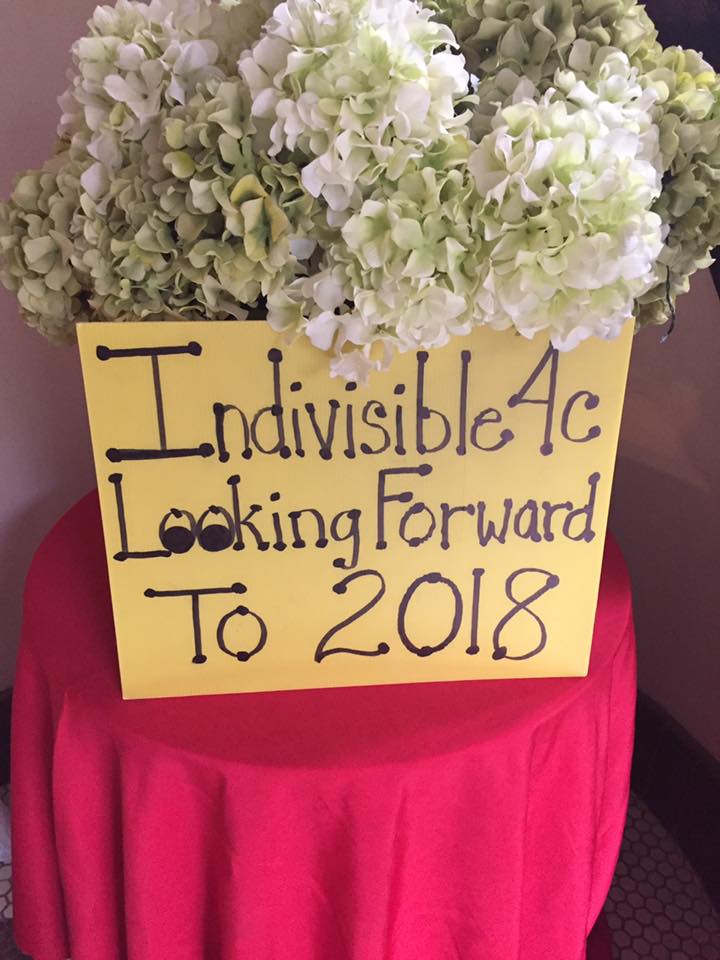 Indivisible4c
Looking Forward
To 2018